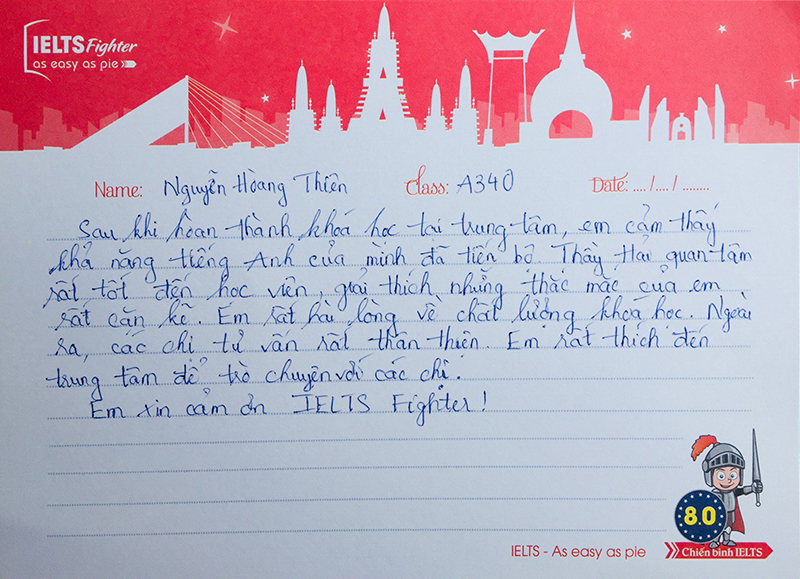 IELTS Fighter
as easy as pie
Name: Nguyễn Hoàng Thiên Class: A340 Date: ..../..../........
Sau khi hoàn thành khoá học tại trung tâm, em cảm thấy
khả năng tiếng Anh của mình đã tiến bộ. Thầy Hải quan tâm
rất tốt đến học viên, giải thích những thắc mắc của em
rất cặn kẽ. Em rất hài lòng về chất lượng khoá học. Ngoài
ra, các chị tư vấn rất thân thiện. Em rất thích đến
trung tâm để trò chuyện với các chị.
Em xin cảm ơn IELTS Fighter!
8.0
IELTS - As easy as pie
Chiến binh IELTS